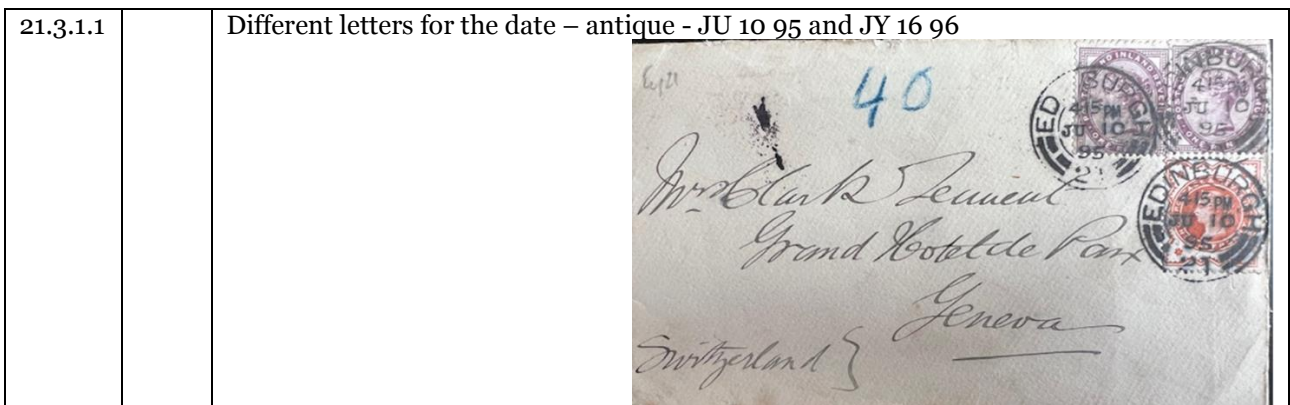 21.3.1.1
Different letters for the date – antique - JU 10 95 and JY 16 96
40
EDINBURGH
4 15 PM
JU 10
95
21
EDINBURGH
4 15 PM
JU 10
95
EDINBURGH
4 15 PM
JU 10
95
21
Mrs Clark Tennent
Grand Hotel de
Geneva
Switzerland